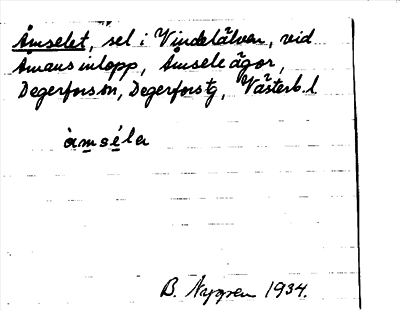 Åmselet, sel i Vindelälven, vid
Åmans inlopp, Åmsele ägor,
Degerforssn, Degerforstg, Västerb.l
àmséla
B. Nygren 1934.